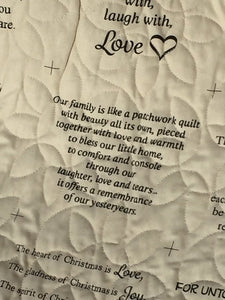 you
are.
with,
laugh with,
Love
Our family is like a patchwork quilt
with beauty all its own, pieced
together with love and warmth
to bless our little home,
to comfort and console
through our
laughter, love and tears...
it offers a remembrance
of our yesteryears.
The heart of Christmas is Love,
The gladness of Christmas is Joy,
The spirit of Christmas is
FOR UNTO